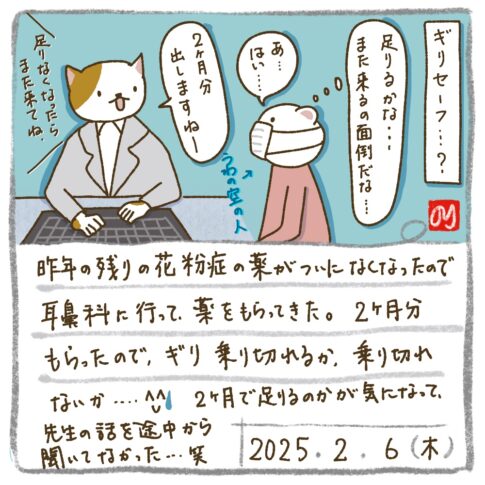 ギリセーフ…?
足りるかな…
また来るの面倒だな…
あ…
はい…
2ヶ月分
出しますねー
足りなくなったら
また来てね、
うわの空の人
のり
昨年の残りの花粉症の薬がついになくなったので
耳鼻科に行って、薬をもらってきた。2ヶ月分
もらったので、ギリ乗り切れるか、乗り切れ
ないか....^^; 2ヶ月で足りるのかが気になって、
先生の話を途中から
聞いてなかった…笑
2025.2.6(木)